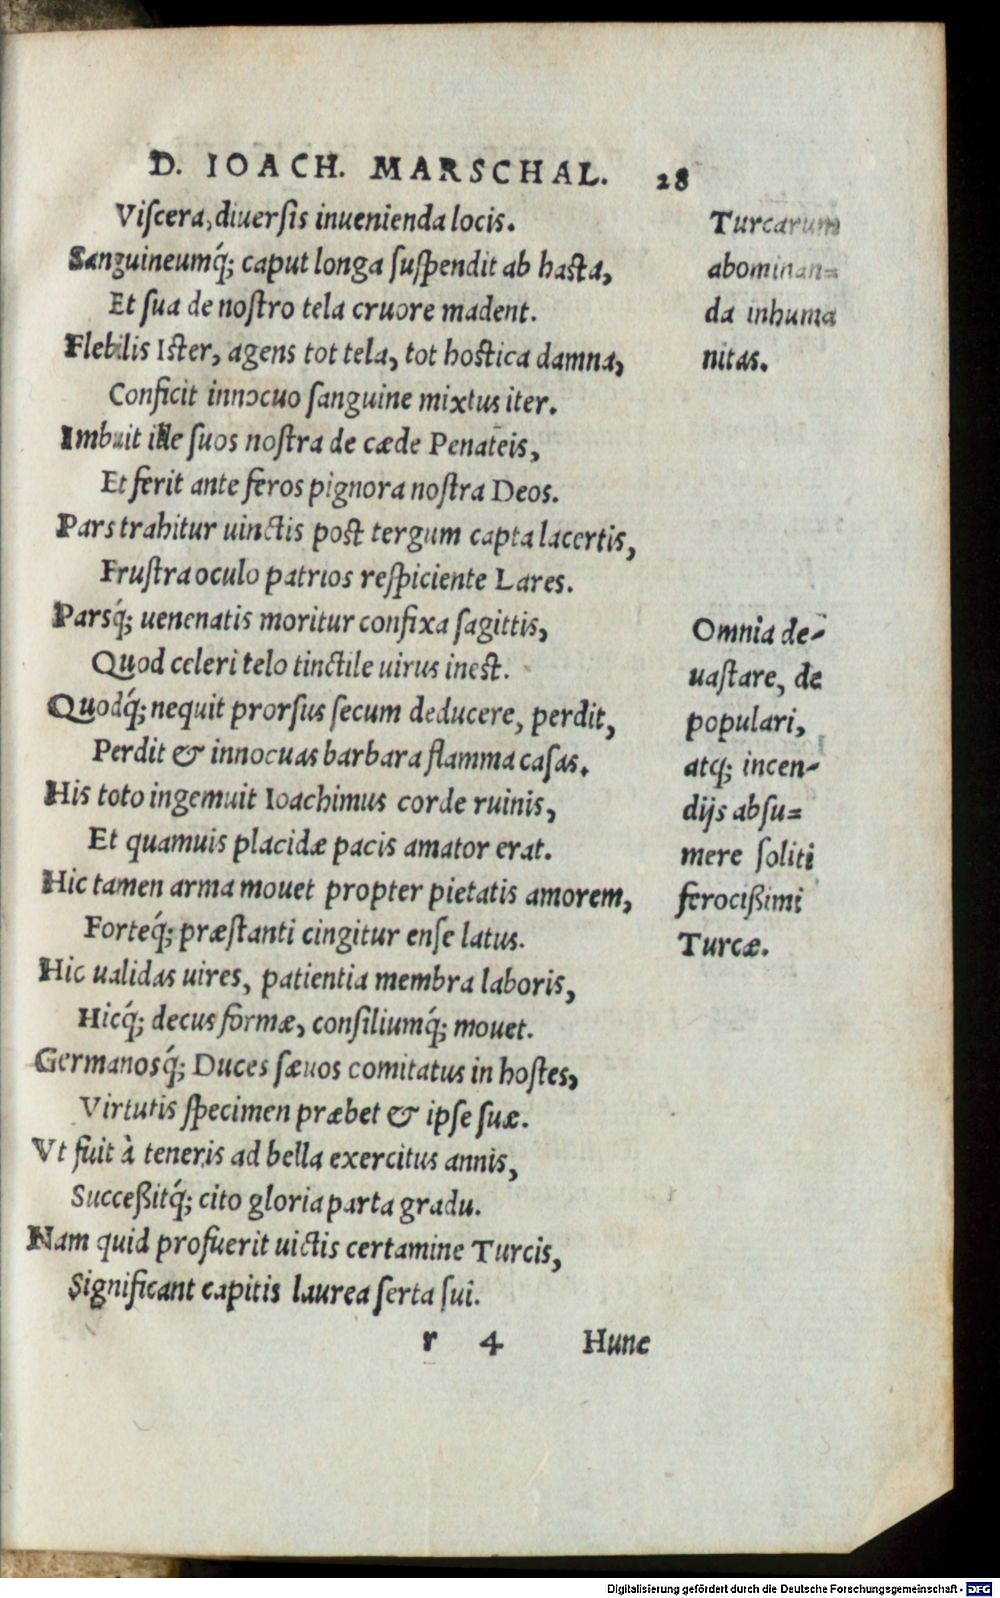 D. IOACH. MARSCHAL. 28
Viſcera, diuerſis inuenienda locis.
Sanguineumq́; caput longa ſuſpendit ab haſta,
Et ſua de noſtro tela cruore madent.
Flebilis Iſter, agens tot tela, tot hoſtica damna,
Conficit innocuo ſanguine mixtus iter.
Imbuit ille ſuos noſtra de cæde Penateis,
Et ferit ante feros pignora noſtra Deos.
Pars trahitur uinctis poſt tergum capta lacertis,
Fruſtra oculo patrios reſpiciente Lares.
Parsq́; uenenatis moritur confixa ſagittis,
Quod celeri telo tinctile uirus ineſt.
Quodq́; nequit prorſus ſecum deducere, perdit,
Perdit & innocuas barbara flamma caſas.
His toto ingemuit Ioachimus corde ruinis,
Et quamuis placidæ pacis amator erat.
Hic tamen arma mouet propter pietatis amorem,
Forteq́; præſtanti cingitur enſe latus.
Hic ualidas uires, patientia membra laboris,
Hicq́; decus formæ, conſiliumq́; mouet.
Germanosq́; Duces ſæuos comitatus in hoſtes,
Virtutis ſpecimen præbet & ipſe ſuæ.
Vt fuit à teneris ad bella exercitus annis,
Succeßitq́; cito gloria parta gradu.
Nam quid profuerit uictis certamine Turcis,
Significant capitis laurea ſerta ſui.
r 4 Hunc
Turcarum
abominan=
da inhuma
nitas.
Omnia de-
uaſtare, de
populari,
atq; incen-
dijs abſu=
mere ſoliti
ferocißimi
Turcæ.
Digitalisierung gefördert durch die Deutsche Forschungsgemeinschaft - DFG